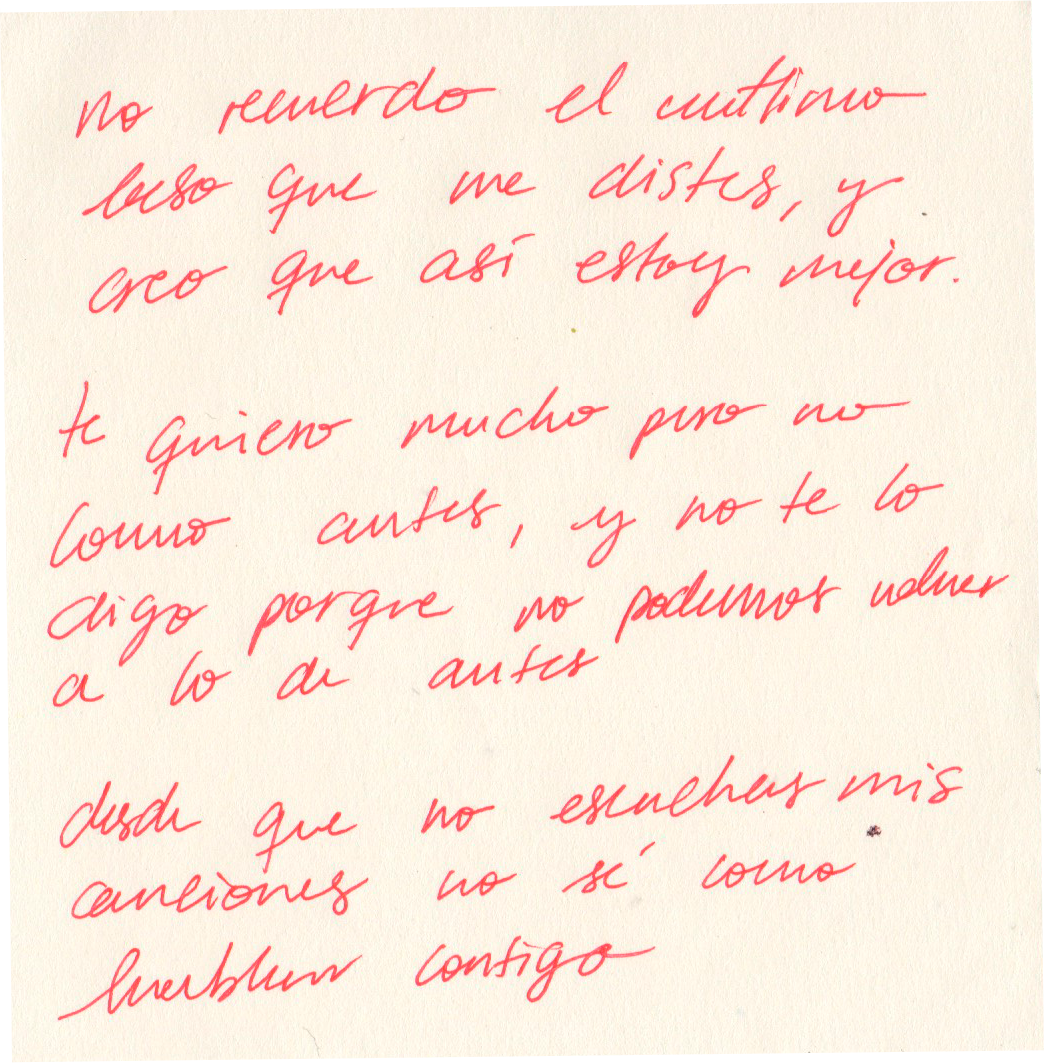 no recuerdo el último
beso que me distes, y
creo que así estoy mejor.
te quiero mucho pero no
como antes, y no te lo
digo porque no podemos volver
a lo de antes
desde que no escuchas mis
canciones no sé como
hablar contigo